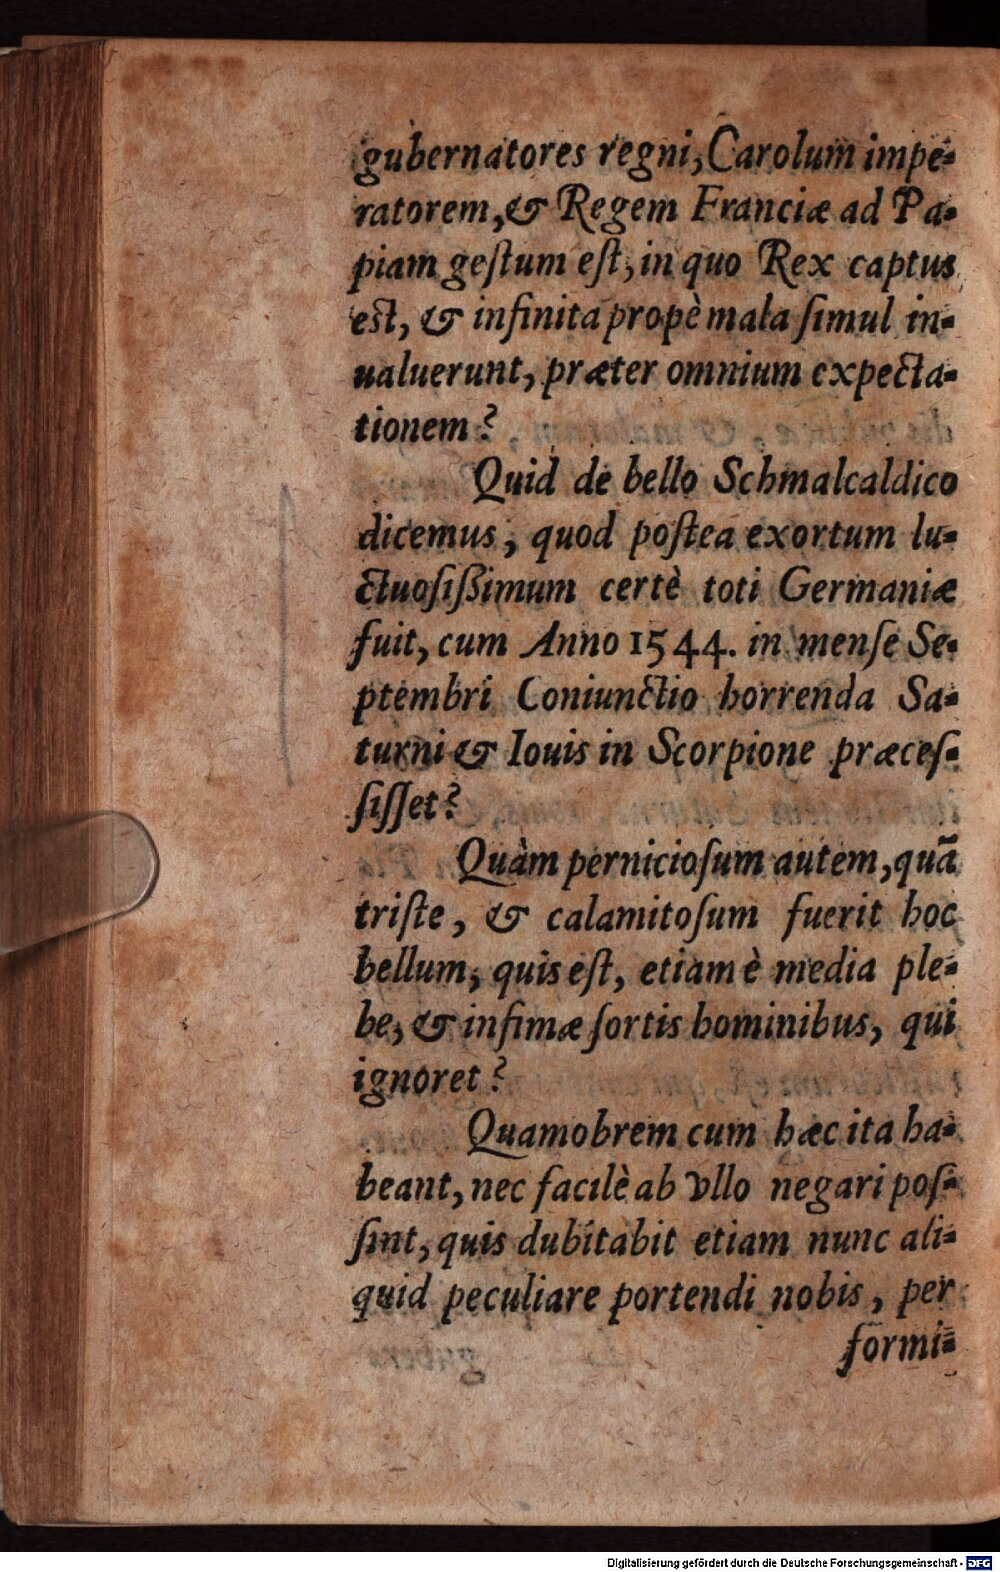 gubernatores regni, Carolum impe-
ratorem, & Regem Franciæ ad Pa-
piam geſtum eſt, in quo Rex captus
est, & infinita propè mala ſimul in-
ualuerunt, præter omnium expecta-
tionem?
Quid de bello Schmalcaldico
dicemus, quod poſtea exortum lu-
ctuoſiſßimum certè toti Germaniæ
fuit, cum Anno 1544. in menſe Se-
ptembri Coniunctio horrenda Sa-
turni & Iouis in Scorpione præceſ-
ſiſſet?
Quàm pernicioſum autem, quã
triſte, & calamitoſum fuerit hoc
bellum, quis eſt, etiam è media ple-
be, & infimæ ſortis hominibus, qui
ignoret?
Quamobrem cum hæc ita ha-
beant, nec facilè ab vllo negari poſ-
ſint, quis dubitabit etiam nunc ali-
quid peculiare portendi nobis, per
formi-
Digitalisierung gefördert durch die Deutsche Forschungsgemeinschaft - DFG